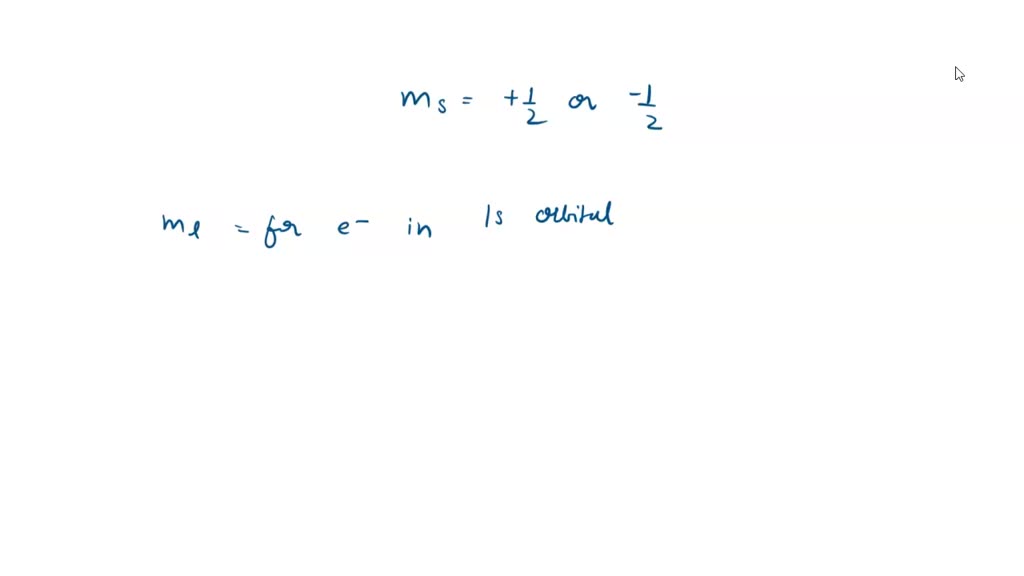 ms = +1/2 or -1/2
ml = for e- in 1s orbital